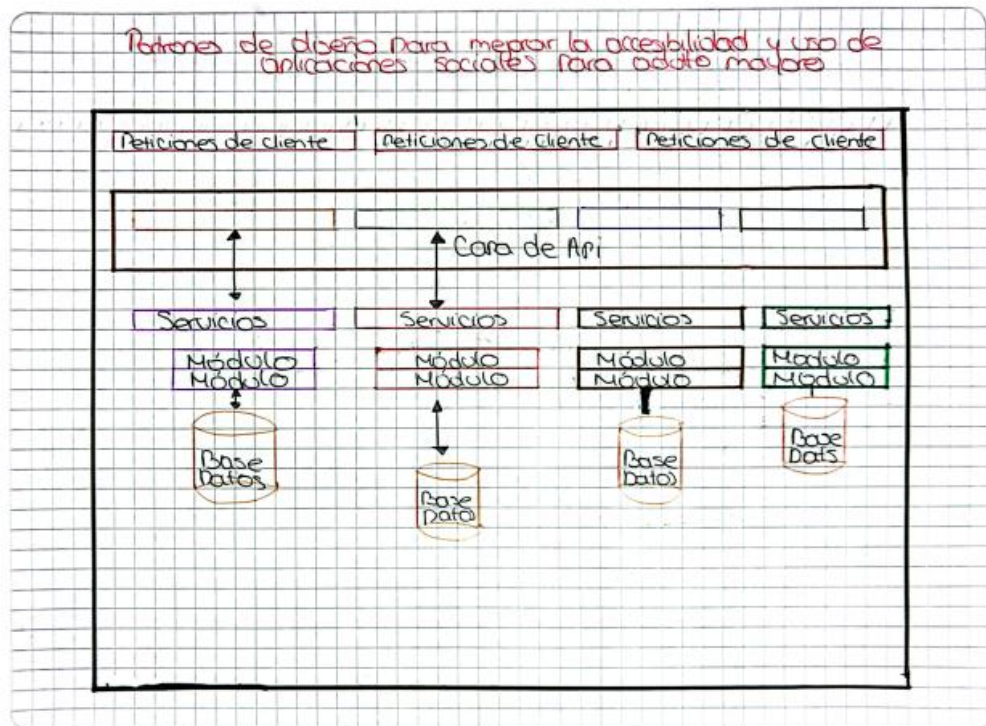 Patrones de diseño para mejorar la accesibilidad y uso de
aplicaciones sociales para adulto mayores
Peticiones de cliente
Peticiones de cliente
Peticiones de cliente
Capa de Api
Servicios
Servicios
Servicios
Servicios
Módulo
Módulo
Módulo
Módulo
Módulo
Módulo
Módulo
Módulo
Base
Datos
Base
Datos
Base
Datos
Base
Dats